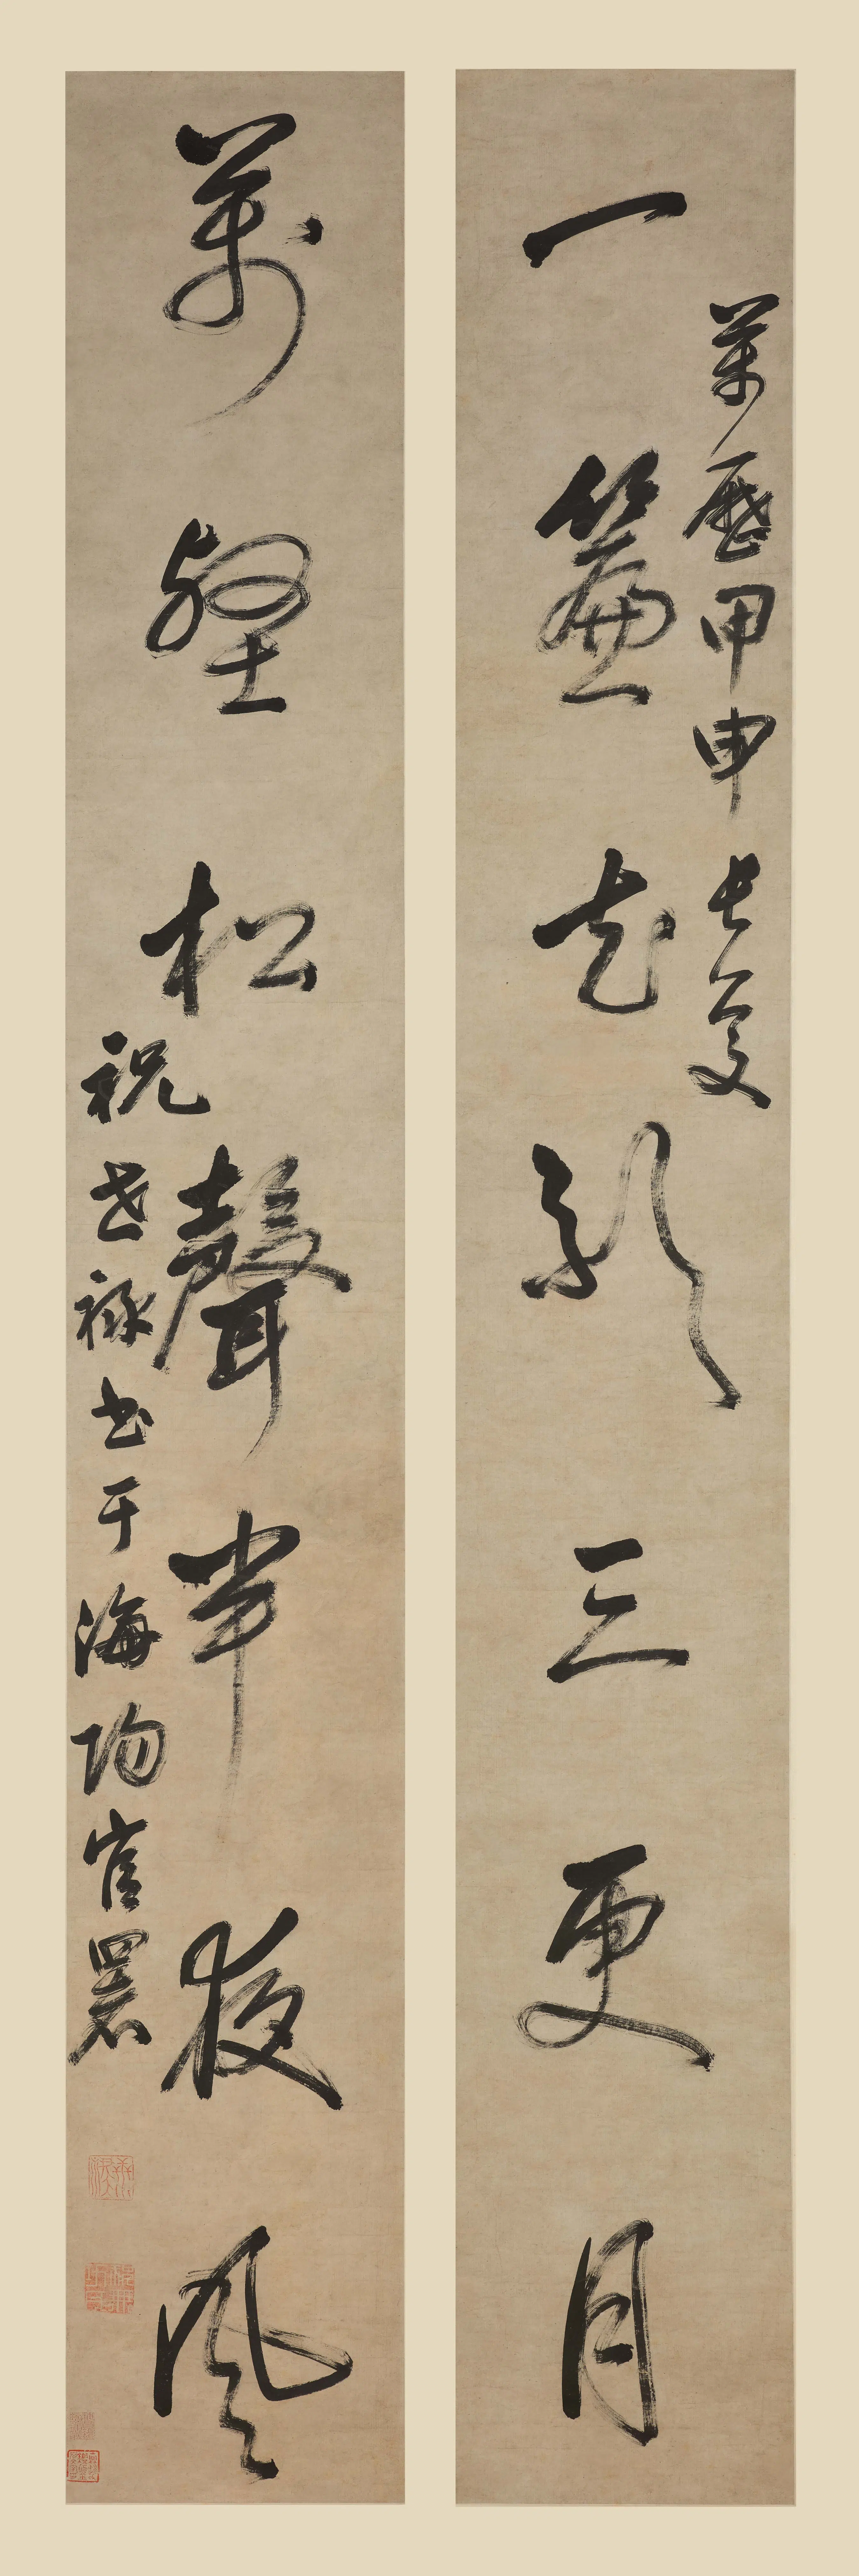 萬曆甲申長夏
一簾花影三更月
萬壑松聲半夜風
祝世祿書于海陽官署